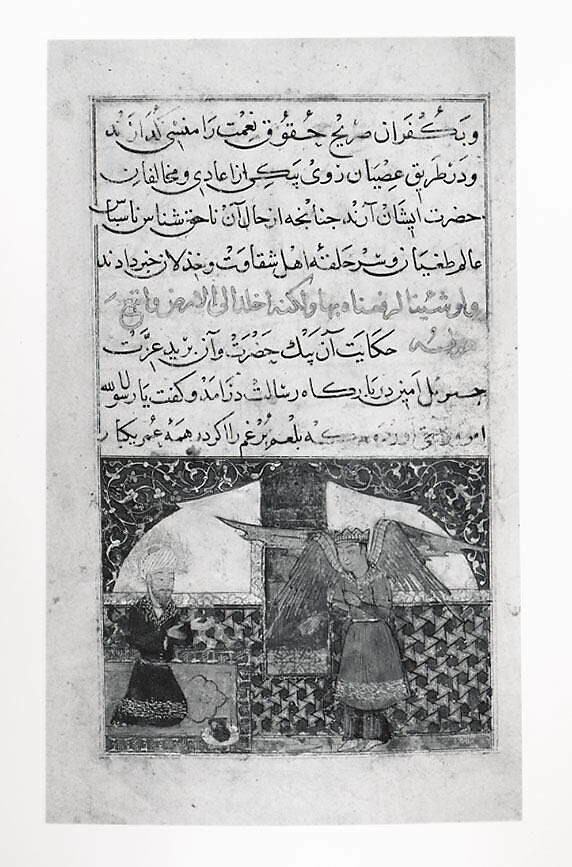 وبکفران صریح حقوق نعمت را منسی گذارند
ودر طریق عصیان روی پیکی از اعادی ومخالفان
حضرت ایشان آرند، جنانجه ازحال آن ناحق شناس ناسپاس
عالم طغیان وسر حلقهٔ اهل شقاوت وخذلان خبر دادند
ولو شئنا لرفعناه بها ولکنه اخلد الی الارض واتبع
هویه حکایت آن پیک حضرت وآن برید عزت
جبرئیل امین دربارگاه رسالت درآمد وکفت یا رسول الله
امروز بلعم برغم را کرد همه عمر یکبار